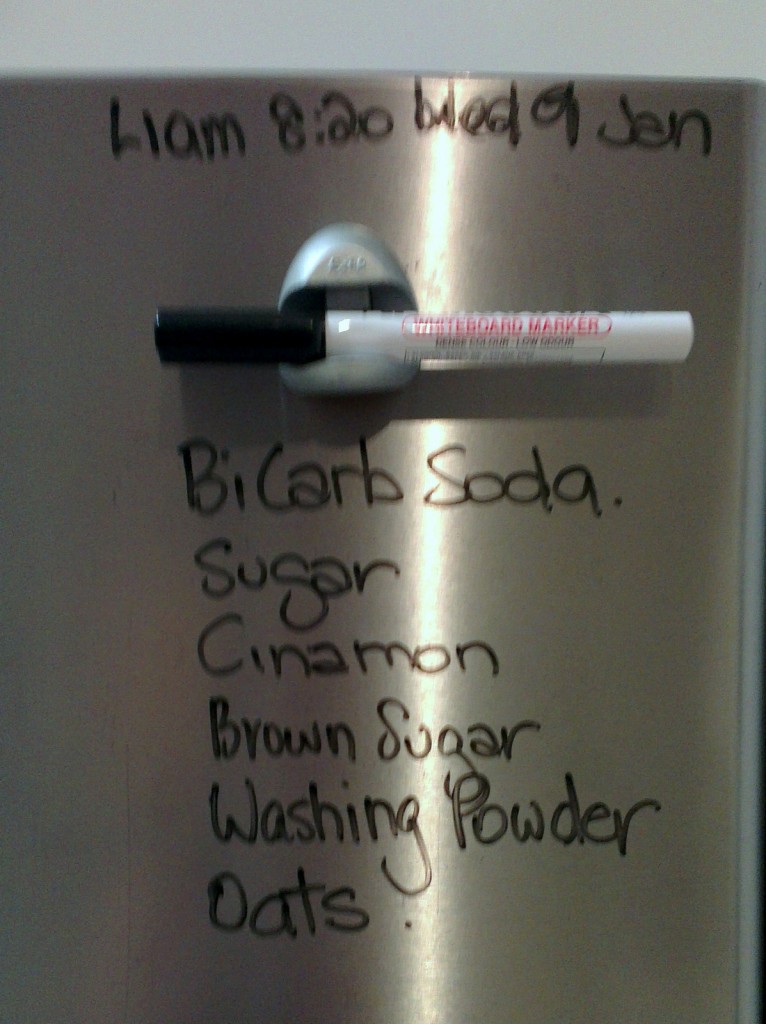 Liam 8:20 Wed 9 Jan
WHITEBOARD MARKER
DENSE COLOUR - LOW ODOUR
BiCarb Soda.
Sugar
Cinamon
Brown Sugar
Washing Powder
Oats.